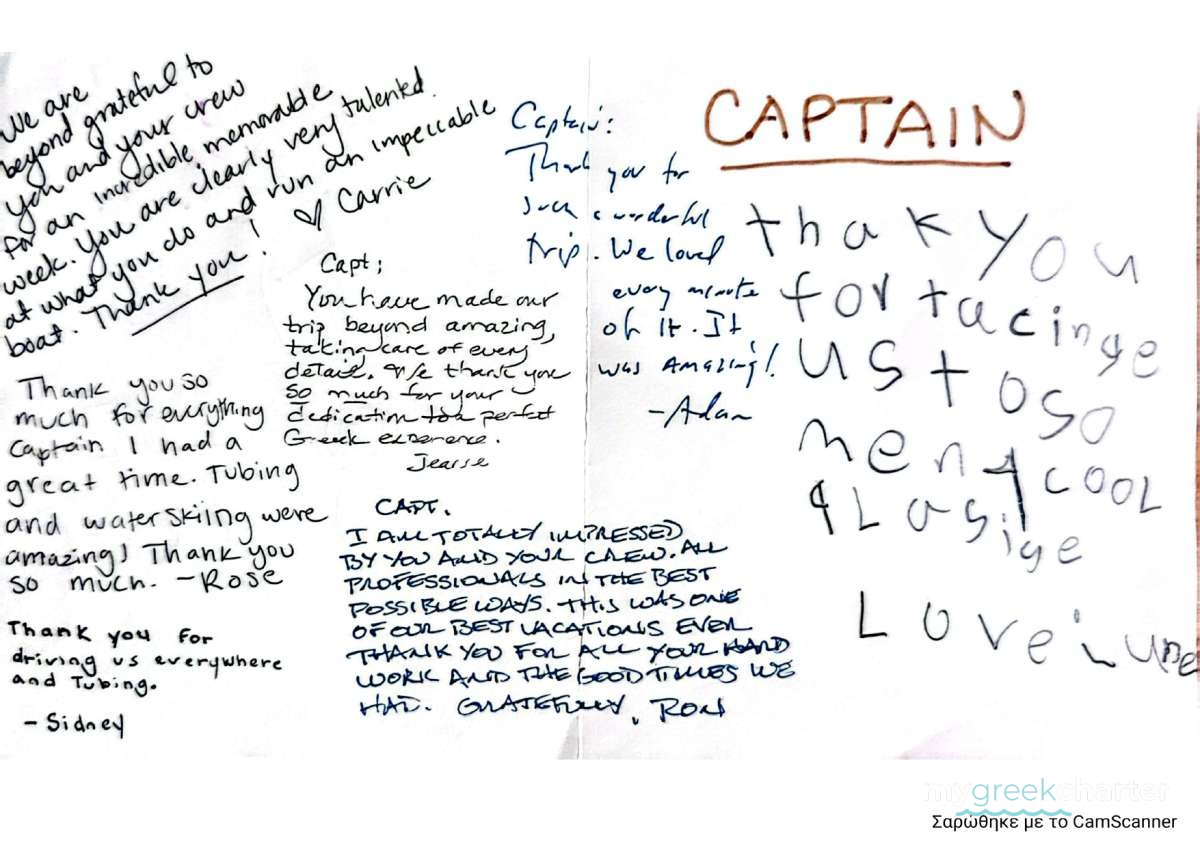 We are
beyond grateful to
you and your crew
for an incredible, memorable
week. You are clearly very talented.
at what you do and run an impeccable
boat. Thank you! ♡ Carrie
Thank you so
much for everything
Captain I had a
great time. Tubing
and water skiing were
amazing! Thank you
so much. -Rose
Thank you for
driving us everywhere
and Tubing.
- Sidney
Capt;
You have made our
trip beyond amazing,
taking care of every
detail. We thank you
so much for your
dedication to a perfect
Greek experience.
CAPT.
I AM TOTALLY IMPRESSED
BY YOU AND YOUR CREW. ALL
PROFESSIONALS IN THE BEST
POSSIBLE WAYS. THIS WAS ONE
OF OUR BEST VACATIONS EVER
THANK YOU FOR ALL YOUR HARD
WORK AND THE GOOD TIMES WE
HAD. GRATEFULLY, RON
Captain:
Thank you for
such a wonderful
trip. We loved
every minute
of it. It
was Amazing!
-Adam
CAPTAIN
thak you
for tacinge
us to so
meny cool
plasige
Love
mygreekcharter
Σαρώθηκε με το CamScanner